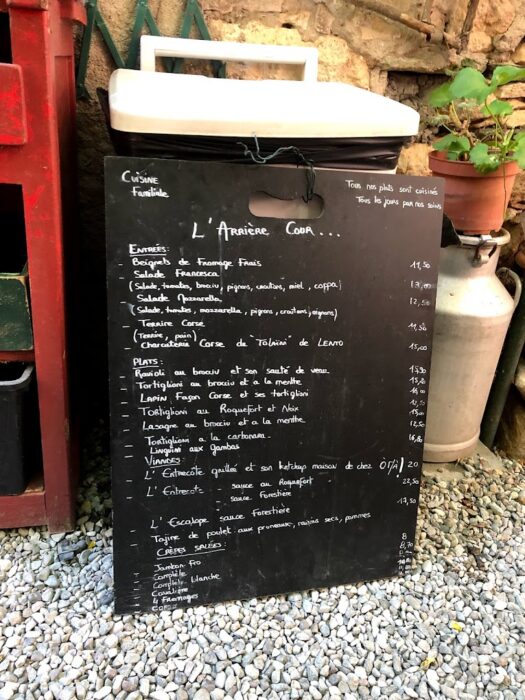 Cuisine
Familiale
Tous nos plats sont cuisinés
Tous les jours par nos soins
L'Arrière Cour...
Entrées:
- Beignets de fromage frais 11,50
- Salade Francesca
(Salade, tomates, brociu, pignons, croûtons, miel, coppa) 13,00
- Salade Mozzarella 12,50
(Salade, tomates, mozzarella, pignons, croûtons, oignons)
- Terrine Corse 11,50
(Terrine, pain)
- Charcuterie Corse de "Tolaini" de LENTO 15,00
PLATS:
- Ravioli au brociu et son sauté de veau
- Tortiglioni au brociu et a la menthe
- Lapin façon Corse et ses tortiglioni
- Tortiglioni au Roquefort et Noix
- Lasagne au brociu et a la menthe
- Tortiglioni a la carbonara
- Linguini aux Gambas
VIANDES:
- L'Entrecôte grillée et son ketchup maison de chez 20
- L'Entrecote - sauce au Roquefort 22,50
- sauce Forestière
- L'Escalope sauce Forestière 17,50
- Tajine de poulet: aux pruneaux, raisins secs, pommes
CRÊPES SALÉES:
- Jambon Fro 8
- Complète
- Complète blanche
- Cavalière
- 4 Fromages
- Corse